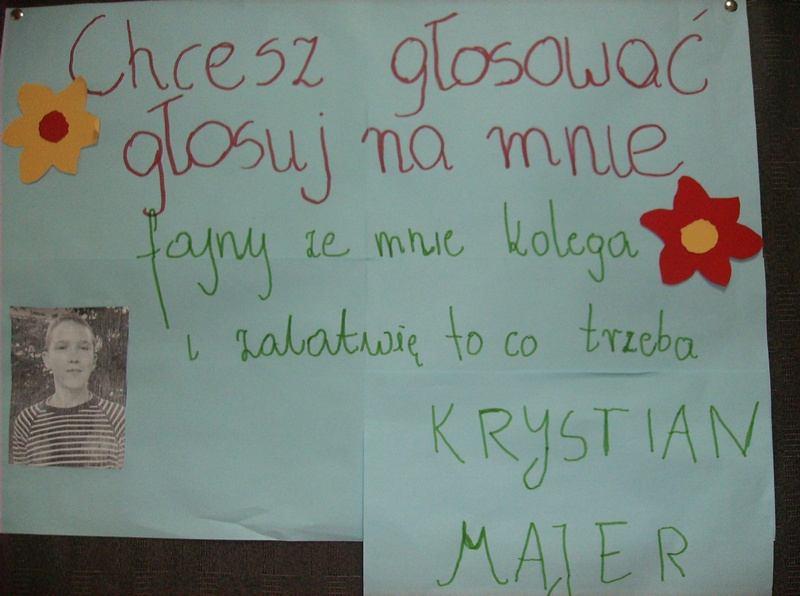 Chcesz głosować
głosuj na mnie
fajny ze mnie kolega
i załatwię to co trzeba
KRYSTIAN
MAJER